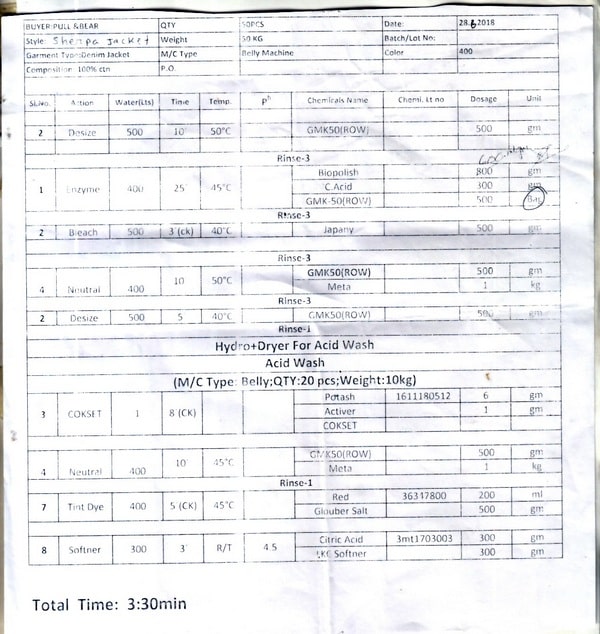 BUYER:PULL &BEAR QTY 50PCS Date: 28.6.2018
Style: Sherpa Jacket Weight 50 KG Batch/Lot No:
Garment Type:Denim Jacket M/C Type Belly Machine Color 400
Composition 100% ctn P.O.
SL.No. Action Water(Lts) Time Temp. ph Chemicals Name Chemi. Lt no Dosage Unit
2 Desize 500 10 50°C GMK50(ROW) 500 gm
Rinse-3
Biopolish 800 gm
1 Enzyme 400 25 45°C C.Acid 300 gm
GMK-50(ROW) 500
Rinse-3
2 Bleach 500 3 (ck) 40°C Japany 500 gm
Rinse-3
GMK50(ROW) 500 gm
4 Neutral 400 10 50°C Meta 1 kg
Rinse-3
2 Desize 500 5 40°C GMK50(ROW) 500 gm
Rinse-1
Hydro+Dryer For Acid Wash
Acid Wash
(M/C Type: Belly;QTY:20 pcs;Weight:10kg)
Potash 1611180512 6 gm
3 COKSET 1 8 (CK) Activer 1 gm
COKSET
GMK50(ROW) 500 gm
4 Neutral 400 10 45°C Meta 1 kg
Rinse-1
Red 36317800 200 ml
7 Tint Dye 400 5 (CK) 45°C Glouber Salt 500 gm
Citric Acid 3mt1703003 300 gm
8 Softner 300 3 R/T 4.5 LKC Softner 300 gm
Total Time: 3:30min